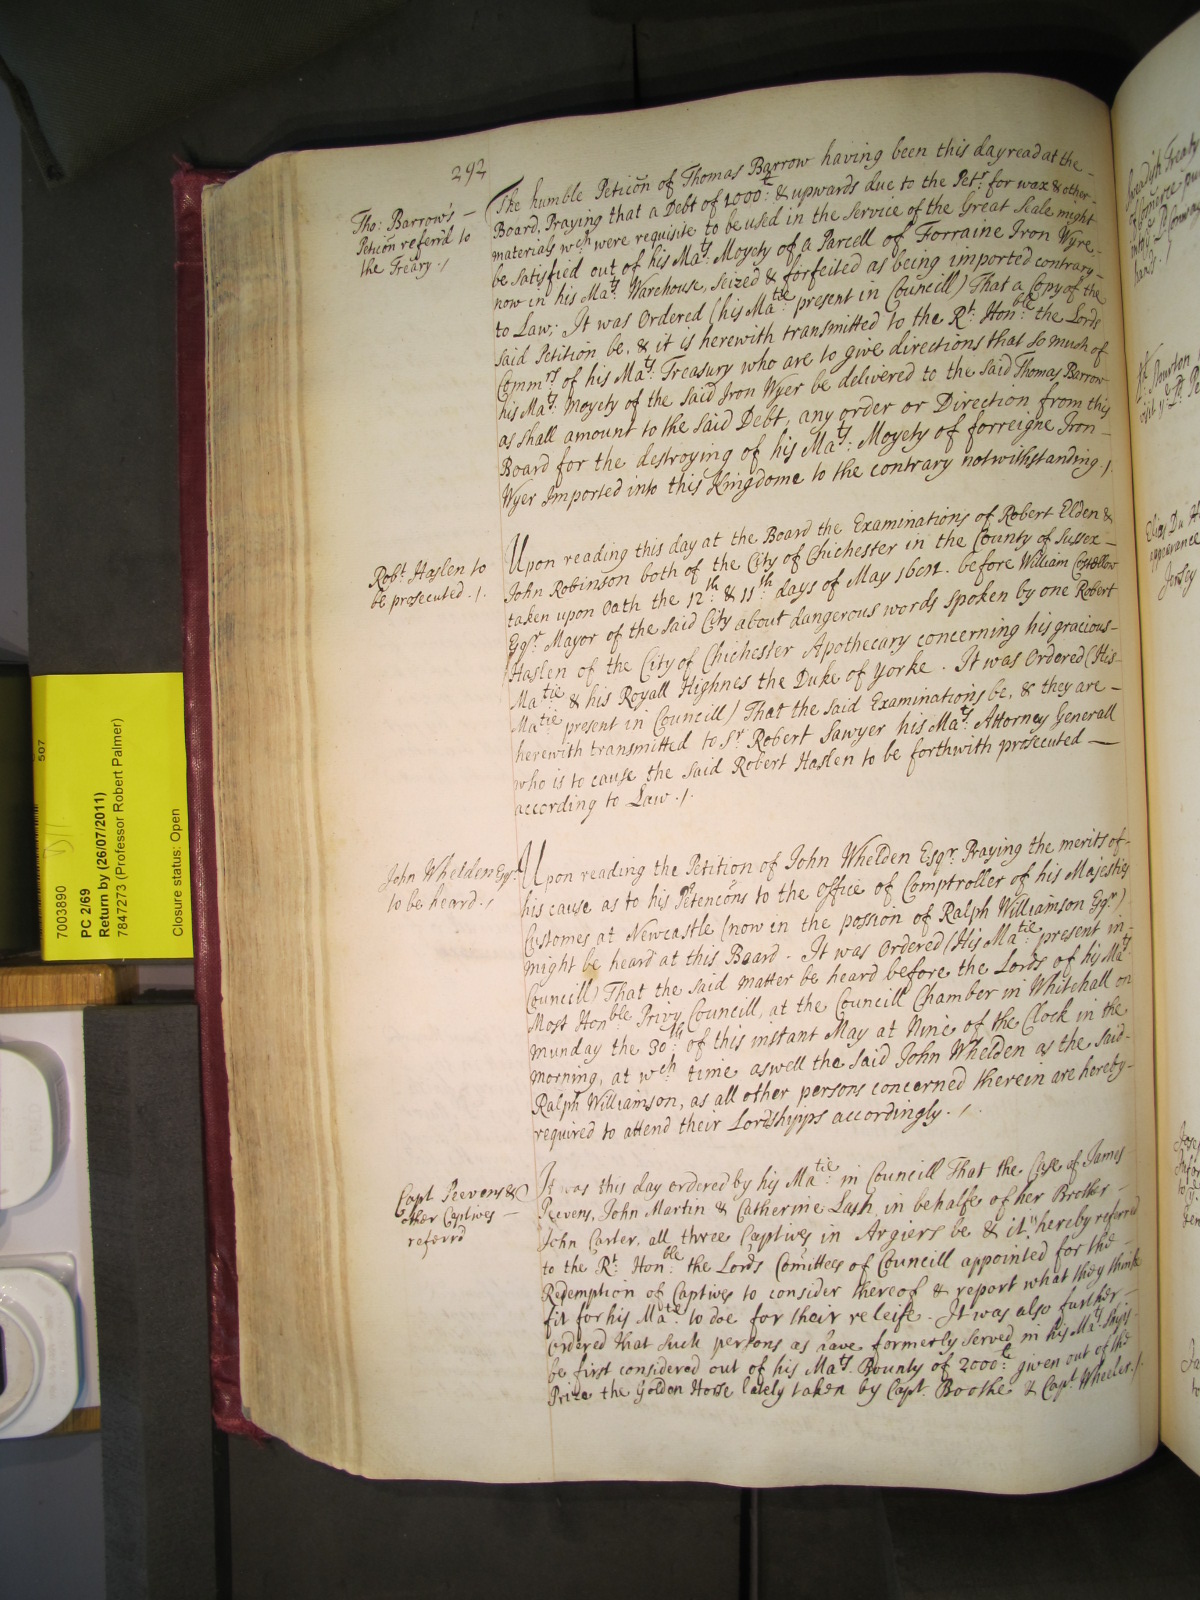 292
Tho: Barrow's
Peticõn referr'd to
the Treãry ./
The humble Peticõn of Thomas Barrow having been this day read at the
Board, Praying that a Debt of 1000:£ & upwards due to the Petr: for wax & other
materials wch were requisite to be used in the Service of the Great Seale might
be satisfied out of his Mats: Moyety of a Parcell of Forraine Iron Wyre
now in his Mats. Warehouse, seized & forfeited as being imported contrary
to Law; It was Ordered (his Matie present in Councill) That a Copy of the
said Petition be, & it is herewith transmitted to the Rt. Honble: the Lords
Commrs of his Mats: Treasury who are to give directions that so much of
his Mats: Moyety of the said Iron Wyer be delivered to the said Thomas Barrow
as shall amount to the said Debt, any order or Direction from this
Board for the destroying of his Mats: Moyety of forreigne Iron
Wyer Imported into this Kingdome to the contrary notwithstanding ./.
Robt. Haslen to
be prosecuted ./.
Upon reading this day at the Board the Examinations of Robert Elden &
John Robinson both of the City of Chichester in the County of Sussex
taken upon Oath the 12th: & 11th days of May before William
Esqr. Mayor of the said City about dangerous words spoken by one Robert
Haslen of the City of Chichester Apothecary concerning his gracious
Matie & his Royall Highnes the Duke of Yorke . It was Ordered (His
Matie present in Councill) That the said Examinations be, & they are
herewith transmitted to Sr. Robert Sawyer his Mats. Attorney Generall
who is to cause the said Robert Haslen to be forthwith prosecuted
according to Law ./.
John Whelden Esqr.
to be heard ./
Upon reading the Petition of John Whelden Esqr. Praying the merits of
his cause as to his Petencõns to the Office of Comptroller of his Majesties
Customes at Newcastle (now in the possion of Ralph Williamson Esqr)
might be heard at this Board . It was Ordered (His Matie present in
Councill) That the said matter be heard before the Lords of his Mats
Most Honble Privy Councill, at the Councill Chamber in Whitehall on
Munday the 30th: of this instant May at Nine of the Clock in the
morning, at wch time aswell the said John Whelden as the said
Ralph Williamson, as all other persons concerned therein are hereby
required to attend their Lordshipps accordingly ./.
Capt Peevens &
other Captives
referrd
It was this day ordered by his Matie: in Councill That the Case of James
Peevens, John Martin & Catherine Lash, in behalfe of her Brother
John Carter, all three Captives in Argiers be & it is hereby referred
to the Rt. Honble: the Lords Comittees of Councill appointed for the
Redemption of Captives to consider thereof & report what they thinke
fit for his Matie: to doe for their releife . It was also further
Ordered that such persons as have formerly served in his Mats Ships
be first considered out of his Mats. Bounty of 2000£: given out of the
Prize the Golden Horse lately taken by Capt. Boothe & Capt. Wheeler ./.
507
7003890
PC 2/69
Return by (26/07/2011)
7847273 (Professor Robert Palmer)
Closure status: Open